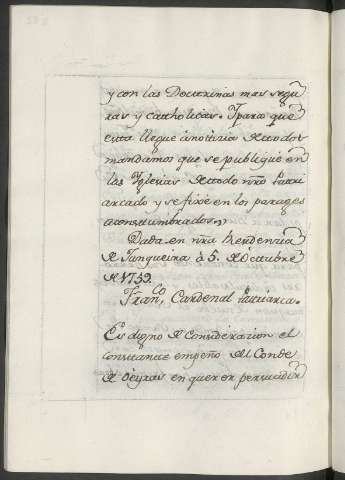 y con las Doctrinas mas segu
ras y catholicas. Y para que
esta llegue à noticia de todos
mandamos que se publique en
las Iglesias de todo nro Patri
arcado y se fixe en los parages
acostumbrados.
Dada en nra Residencia
de Junqueira à 5. de Octubre
de 1759.
Fran.co Cardenal Patriarca.
Es digno de consideracion el
constante empeño del Conde
de Oeyras en querer persuadir